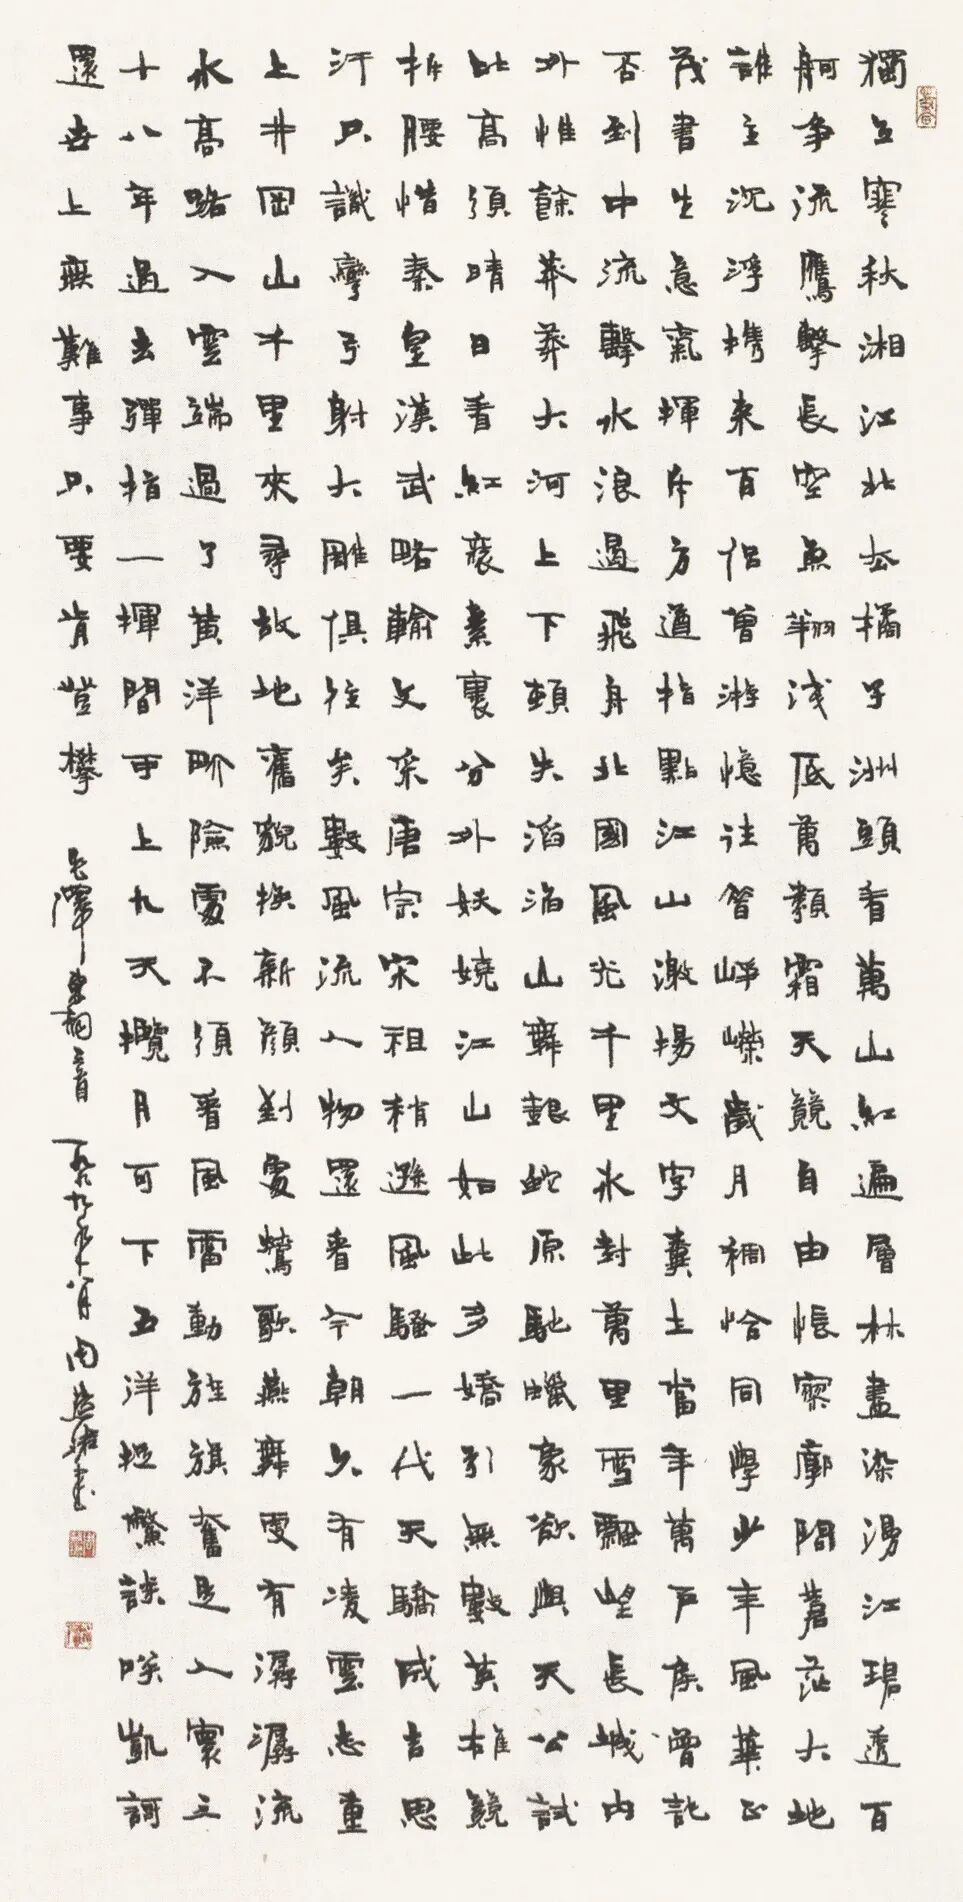 獨立寒秋湘江北去橘子洲頭看萬山紅遍層林盡染漫江碧透百
舸爭流鷹擊長空魚翔淺底萬類霜天競自由悵寥廓問蒼茫大地
誰主沉浮攜來百侶曾游憶往昔崢嶸歲月稠恰同學少年風華正
茂書生意氣揮斥方遒指點江山激揚文字糞土當年萬戶侯曾記
否到中流擊水浪遏飛舟北國風光千里冰封萬里雪飄望長城內
外惟餘莽莽大河上下頓失滔滔山舞銀蛇原馳蠟象欲與天公試
比高須晴日看紅裝素裹分外妖嬈江山如此多嬌引無數英雄競
折腰惜秦皇漢武略輸文采唐宗宋祖稍遜風騷一代天驕成吉思
汗只識彎弓射大雕俱往矣數風流人物還看今朝久有凌雲志重
上井岡山千里來尋故地舊貌換新顏到處鶯歌燕舞更有潺潺流
水高路入雲端過了黃洋界險處不須看風雷動旌旗奮是人寰三
十八年過去彈指一揮間可上九天攬月可下五洋捉鱉談笑凱歌
還世上無難事只要肯登攀 毛澤東詞三首 一九九九年八月 周慧珺書